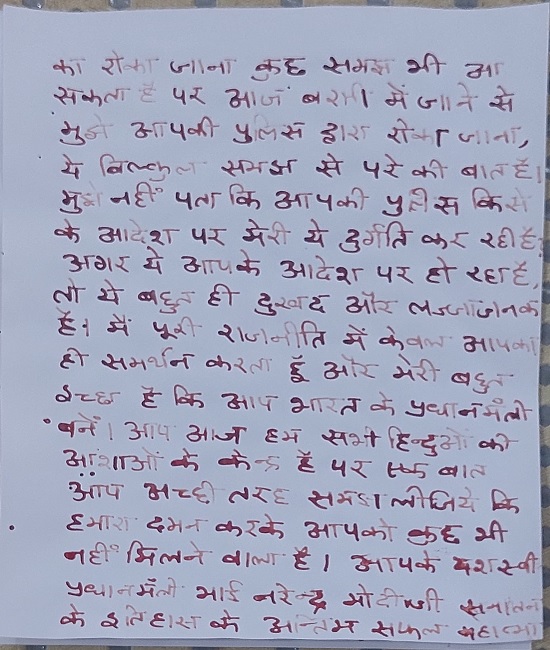 का रोका जाना कुछ समझ भी आ
सकता है पर आज बरसी में जाने से
मुझे आपकी पुलिस द्वारा रोका जाना,
ये बिल्कुल समझ से परे की बात है।
मुझे नहीं पता कि आपकी पुलिस किसे
के आदेश पर मेरी ये दुर्गति कर रही है?
अगर ये आपके आदेश पर हो रहा है,
तो ये बहुत ही दुखद और लज्जाजनक
है। मैं पूरी राजनीति में केवल आपका
ही समर्थन करता हूँ और मेरी बहुत
इच्छा है कि आप भारत के प्रधानमंत्री
बनें। आप आज हम सभी हिन्दुओं की
आशाओं के केन्द्र हैं पर एक बात
आप अच्छी तरह समझ लीजिये कि
हमारा दमन करके आपको कुछ भी
नहीं मिलने वाला है। आपके यशस्वी
प्रधानमंत्री भाई नरेन्द्र मोदी जी सनातन
के इतिहास के अन्तिम सफल